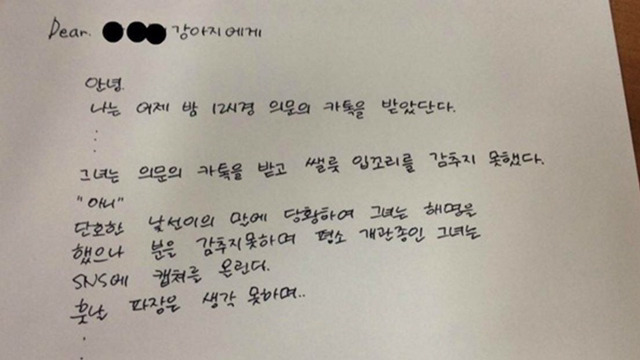 Dear. 강아지에게
안녕.
나는 어제 밤 12시경 의문의 카톡을 받았단다.
:
:
그녀는 의문의 카톡을 받고 쌜룩 입꼬리를 감추지 못했다.
"아니"
단호한 낯선이의 만에 당황하여 그녀는 해명을
했으나 분을 감추지못하며 평소 개관종인 그녀는
SNS에 캡쳐를 올린다.
훗날 파장은 생각 못하며..
: